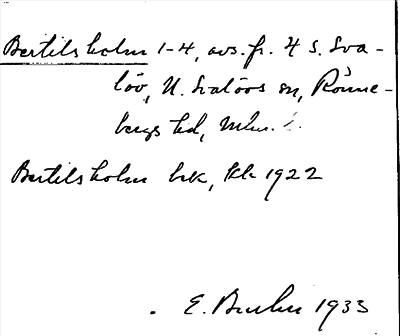 Bertilsholm 1-4, avs. fr. 4 S. Sva-
löv, N. Svalövs sn, Rönne-
bergs hd, Mlm.
Bertilsholm brk, kk 1922
E. Bruhn 1933